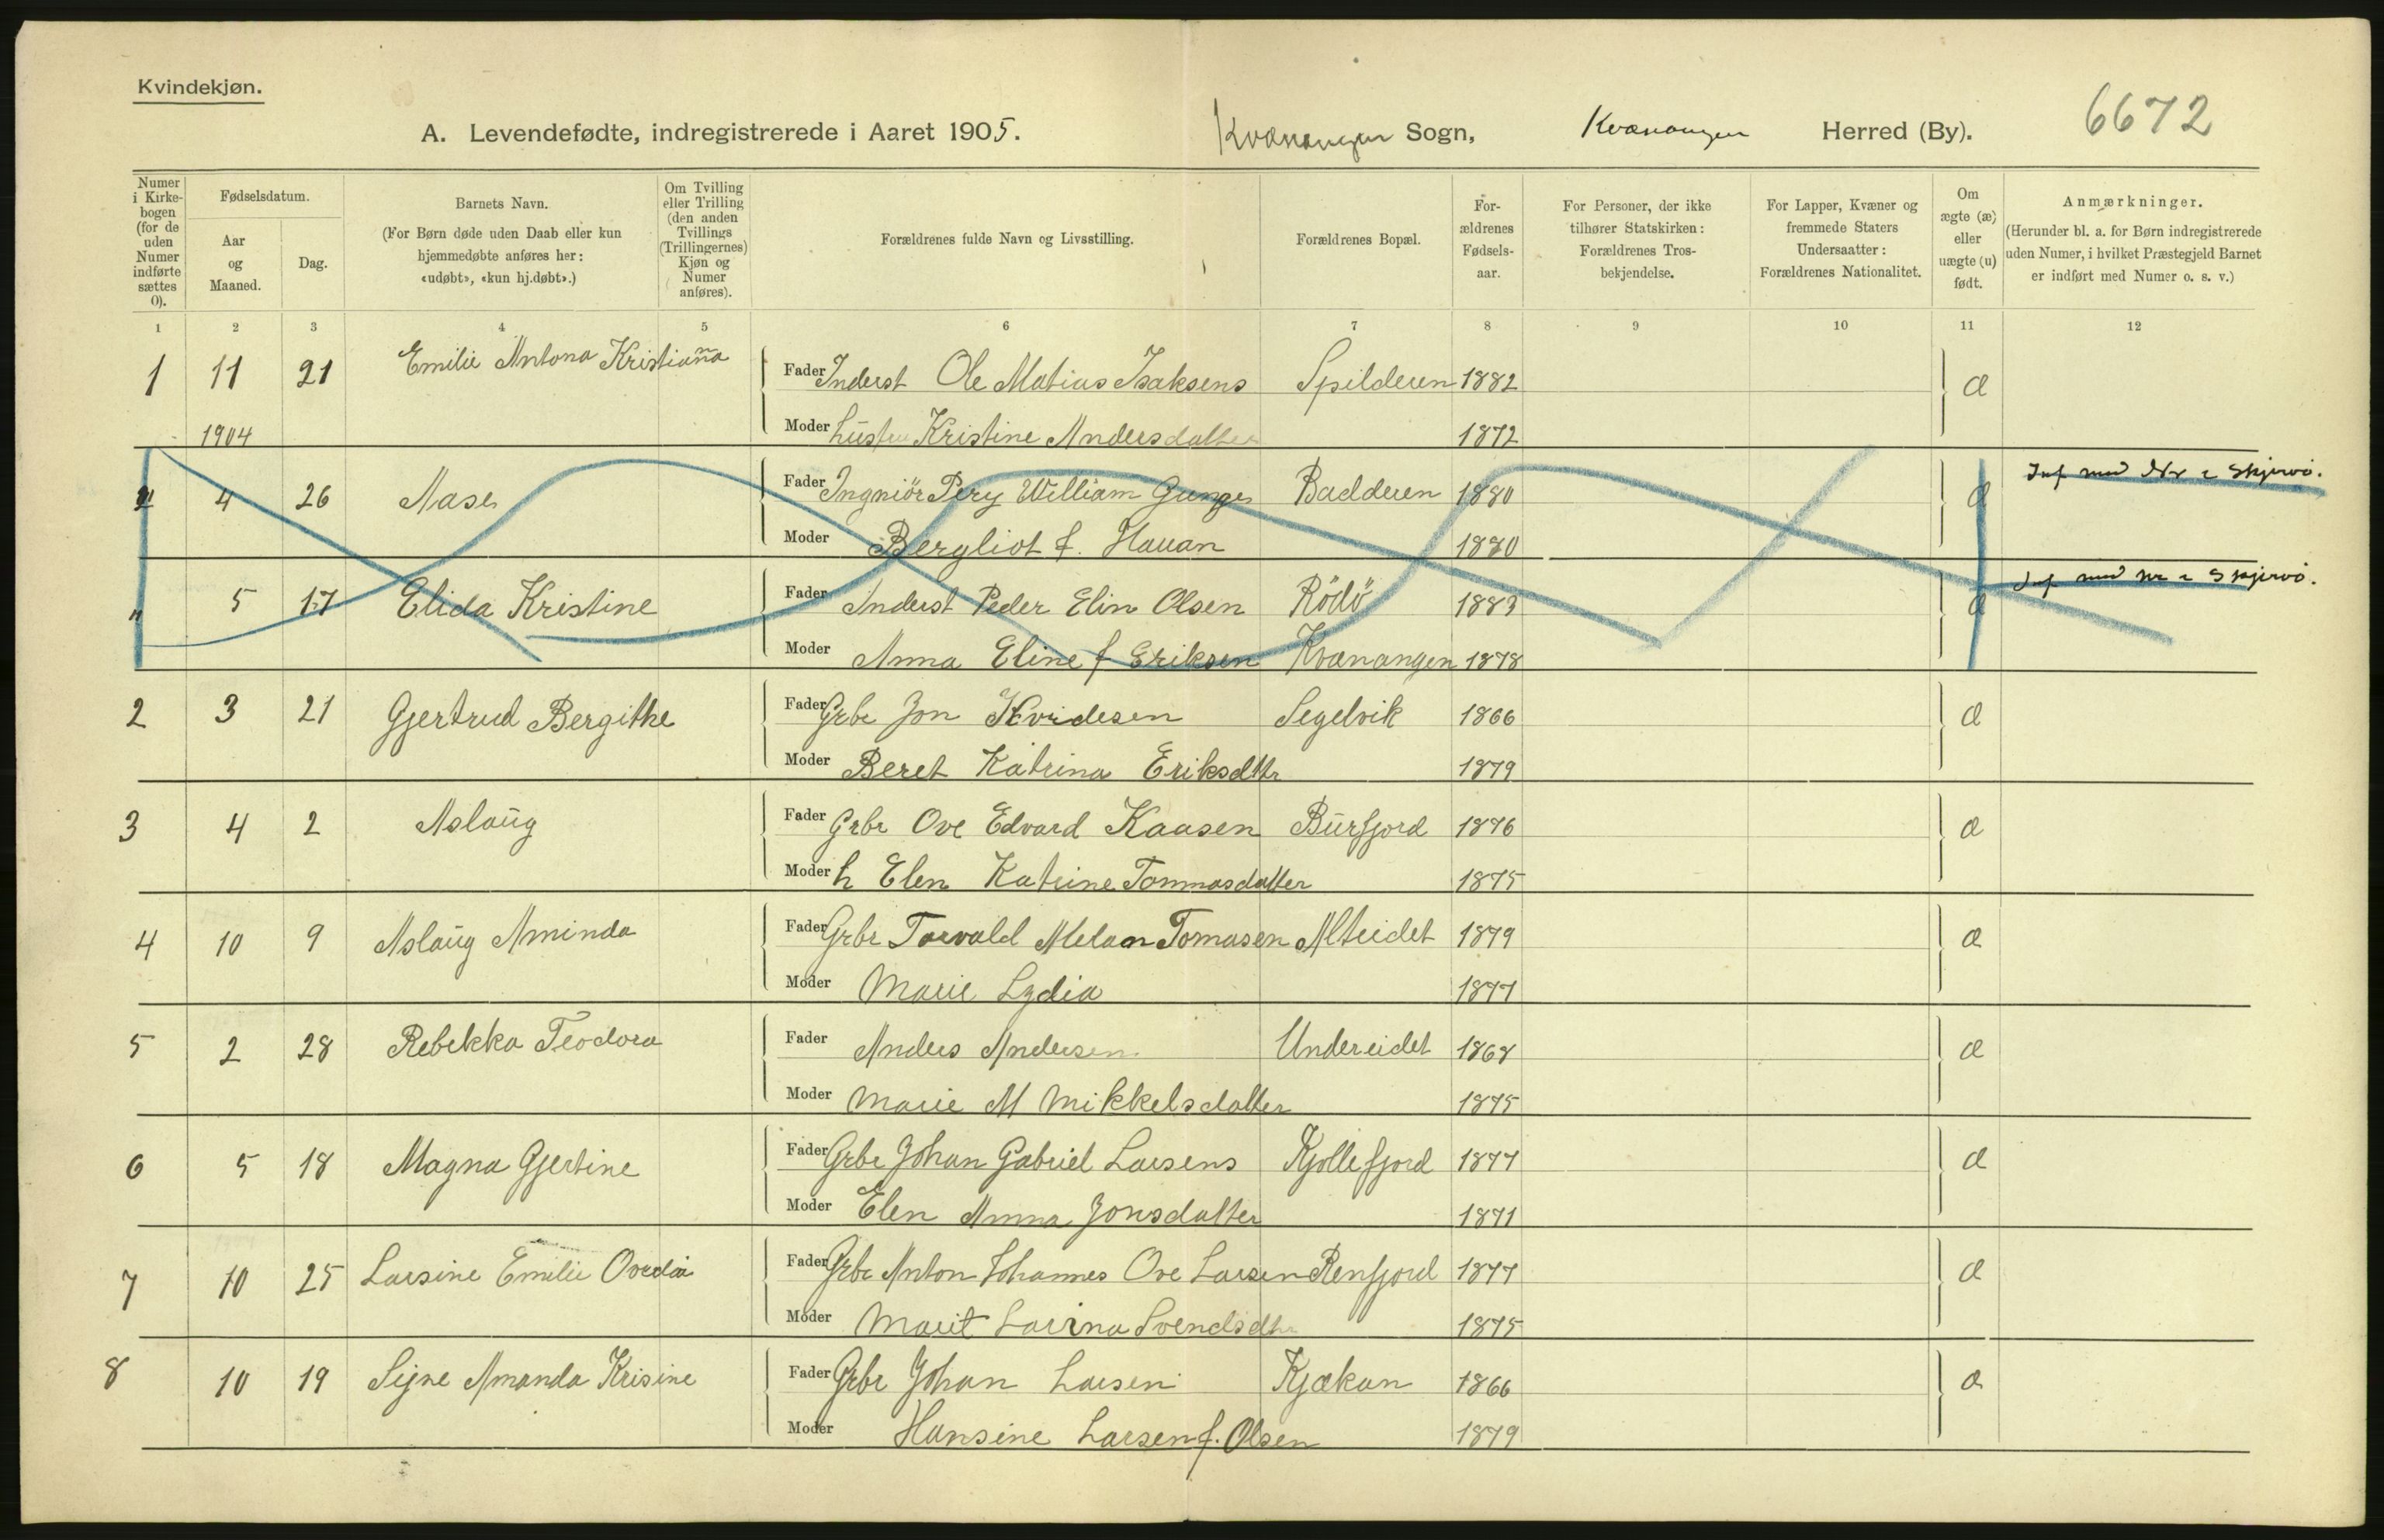 Kvindekjøn.
A. Levendefødte, indregistrerede i Aaret 1905. Kvænangen Sogn, Kvænangen Herred (By). 6672
Numer i Kirkebogen (for de uden Numer indførte sættes 0).
Fødselsdatum.
Aar og Maaned.
Dag.
Barnets Navn.
(For Børn døde uden Daab eller kun hjemmedøbte anføres her: «udøbt», «kun hj.døbt».)
Om Tvilling eller Trilling (den anden Tvillings (Trillingernes) Kjøn og Numer anføres).
Forældrenes fulde Navn og Livsstilling.
Forældrenes Bopæl.
Forældrenes Fødselsaar.
For Personer, der ikke tilhører Statskirken: Forældrenes Trosbekjendelse.
For Lapper, Kvæner og fremmede Staters Undersaatter: Forældrenes Nationalitet.
Om ægte (æ) eller uægte (u) født.
Anmærkninger.
(Herunder bl. a. for Børn indregistrerede uden Numer, i hvilket Præstegjeld Barnet er indført med Numer o. s. v.)
1 2 3 4 5 6 7 8 9 10 11 12
1 11 21 Emilie Antona Kristianna Fader Inderst Ole Matias Isaksens Spilderen 1882 æ
1904 Moder hustru Kristine Andersdatter 1872
" 4 26 Aase Fader Ingniör Pery William Gunges Badderen 1880 æ Inf med Nr i Skjervö.
Moder Bergliot f. Hauan 1880
" 5 17 Elida Kristine Fader Inderst Peder Elin Olsen Rödö 1883 æ Inf med nr i Skjervö.
Moder Anna Eline f Eriksen Kvænangen 1878
2 3 21 Gjertrud Bergithe Fader Grbr Jon Kvidesen Segelvik 1866 æ
Moder Beret Katrina Eriksdttr 1879
3 4 2 Aslaug Fader Grbr Ove Edvard Kaasen Burfjord 1876 æ
Moder h Elen Katrine Tommasdatter 1875
4 10 9 Aslaug Aminda Fader Grbr Torvald Melan Tomasen Alteidet 1879 æ
Moder Marie Lydia 1877
5 2 28 Rebekka Teodora Fader Anders Andersen Undereidet 1868 æ
Moder Marie M Mikkelsdatter 1875
6 5 18 Magna Gjertine Fader Grbr Johan Gabriel Larsens Kjollefjord 1877 æ
Moder Elen Anna Jonsdatter 1871
7 10 25 Larsine Emilie Ovedia Fader Grbr Anton Johannes Ove Larsen Renfjord 1877 æ
Moder Marit Larina Svendsdtr 1875
8 10 19 Sijne Amanda Krisine Fader Grbr Johan Larsen Kjækan 1866 æ
Moder Hansine Larsen f. Olsen 1879